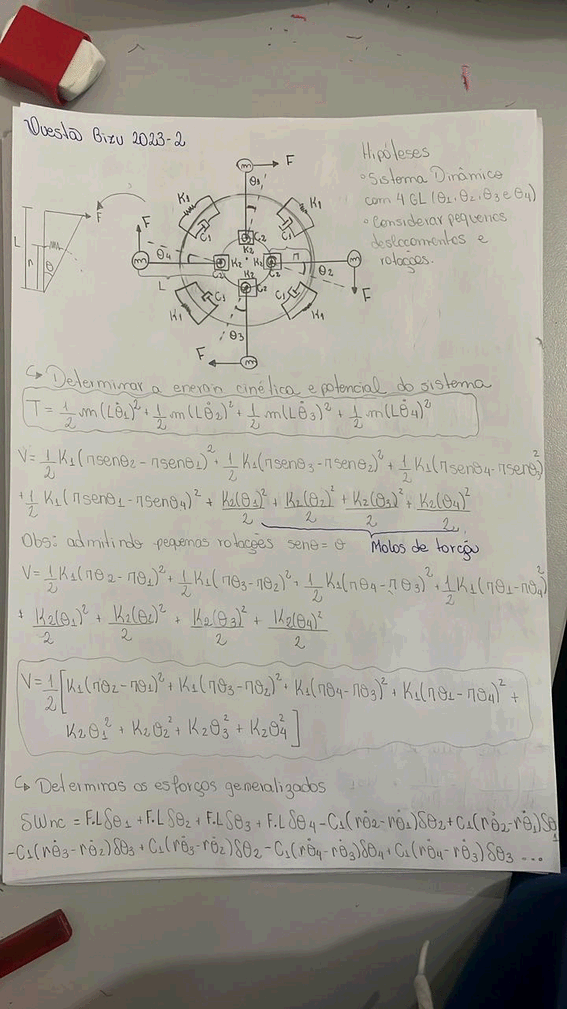 Questão Bizu 2023-2
Hipóteses
• Sistema Dinâmico
com 4 GL (θ1, θ2, θ3 e θ4)
• Considerar pequenos
deslocamentos e
rotações.
m F
θ1
K1 K1
C1 C1
C2
K2
F F
L n θ
m θ4 C2 K2 K2 C2 n m
θ2
L K2 C2 F
C1 C1
K1 K1
θ3
F m
↳ Determinar a energia cinética e potencial do sistema
T = 1/2 m(Lθ̇1)² + 1/2 m(Lθ̇2)² + 1/2 m(Lθ̇3)² + 1/2 m(Lθ̇4)²
V = 1/2 K1(nsenθ2 - nsenθ1)² + 1/2 K1(nsenθ3 - nsenθ2)² + 1/2 K1(nsenθ4 - nsenθ3)²
+ 1/2 K1(nsenθ1 - nsenθ4)² + K2(θ1)²/2 + K2(θ2)²/2 + K2(θ3)²/2 + K2(θ4)²/2
Obs: admitindo pequenas rotações senθ = θ Molas de torção
V = 1/2 K1(nθ2 - nθ1)² + 1/2 K1(nθ3 - nθ2)² + 1/2 K1(nθ4 - nθ3)² + 1/2 K1(nθ1 - nθ4)²
+ K2(θ1)²/2 + K2(θ2)²/2 + K2(θ3)²/2 + K2(θ4)²/2
V = 1/2 [K1(nθ2 - nθ1)² + K1(nθ3 - nθ2)² + K1(nθ4 - nθ3)² + K1(nθ1 - nθ4)² +
K2θ1² + K2θ2² + K2θ3² + K2θ4²]
↳ Determinas os esforços generalizados
SWnc = F.Lδθ1 + F.Lδθ2 + F.Lδθ3 + F.Lδθ4 - C1(rθ̇2 - rθ̇1)δθ2 + C1(rθ̇2 - rθ̇1)δθ1
- C1(rθ̇3 - rθ̇2)δθ3 + C1(rθ̇3 - rθ̇2)δθ2 - C1(rθ̇4 - rθ̇3)δθ4 + C1(rθ̇4 - rθ̇3)δθ3 ...